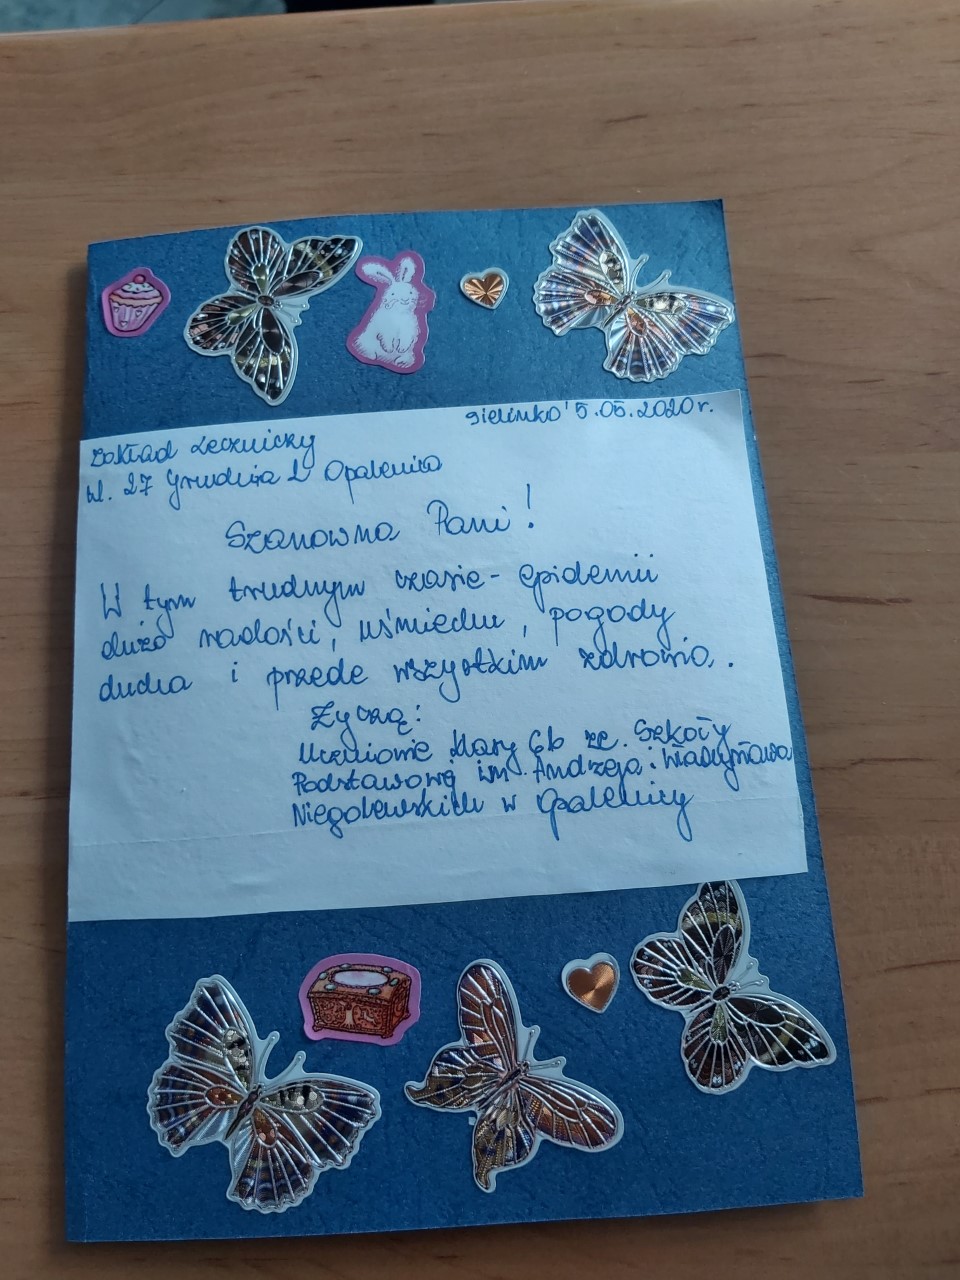 Sielinko 5.05.2020 r.
Zakład Leczniczy
ul. 27 Grudnia 2 Opalenica
Szanowna Pani!
W tym trudnym czasie - epidemii
dużo radości, uśmiechu, pogody
ducha i przede wszystkim zdrowia.
Życzą:
Uczniowie klasy 6b ze. Szkoły
Podstawowej im. Andrzeja i Władysława
Niegolewskich w Opalenicy